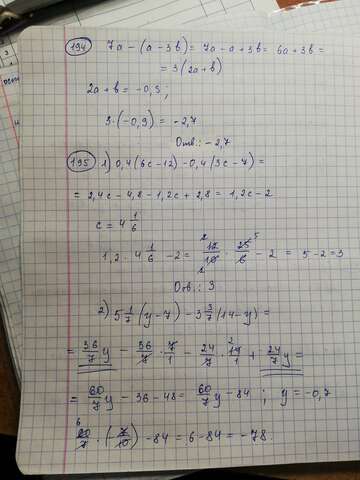 194 7a - (a - 3b) = 7a - a + 3b = 6a + 3b =
= 3(2a + b)
2a + b = -0,9;
3·(-0,9) = -2,7
Отв.: -2,7
195 1) 0,4(6c - 12) - 0,4(3c - 7) =
= 2,4c - 4,8 - 1,2c + 2,8 = 1,2c - 2
c = 4 1/6
1,2 · 4 1/6 - 2 = 12/10 · 25/6 - 2 = 5 - 2 = 3
Отв.: 3
2) 5 1/7 (y - 7) - 3 3/7 (14 - y) =
= 36/7 y - 36/7 · 7/1 - 24/7 · 14/1 + 24/7 y =
= 60/7 y - 36 - 48 = 60/7 y - 84; y = -0,7
60/7 · (-7/10) - 84 = 6 - 84 = -78